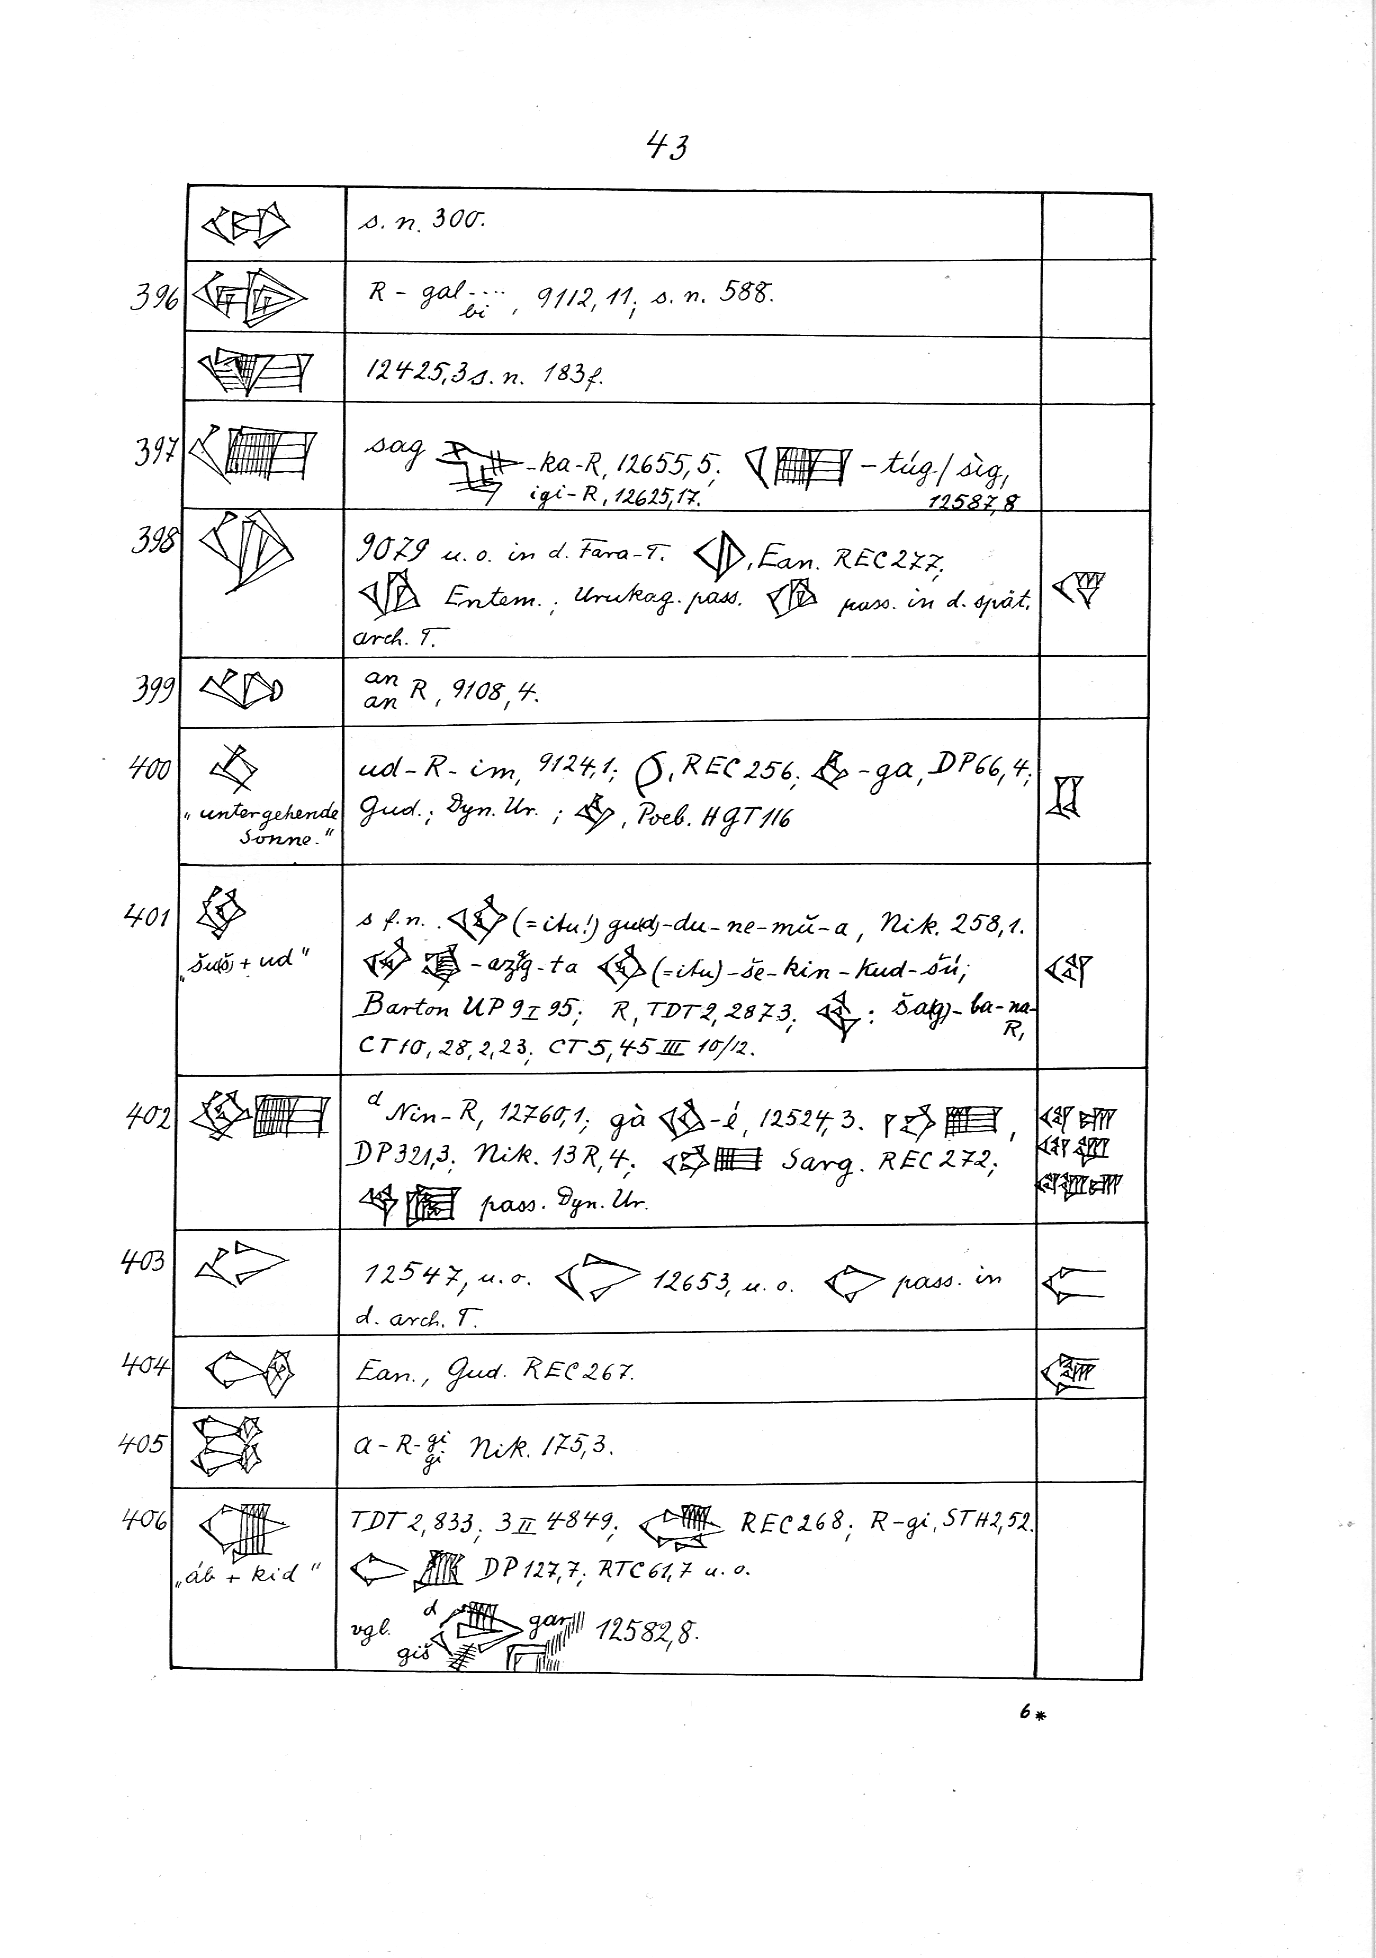 43
s. n. 300.
396 R - gal .... , 9112, 11; s. n. 588.
bi
12425,3 s. n. 183f.
397 sag -ka-R, 12655,5; - túg / sìg,
igi-R, 12625,17. 12587,8
398 9079 u. o. in d. Fara-T. , Ean. REC 277;
Entem.; Urukag. pass. pass. in d. spät.
arch. T.
399 an R, 9108,4.
an
400 ud-R-im, 9124,1; , REC 256; -ga, DP 66,4;
„untergehende Gud.; Dyn. Ur. ; , Poeb. HGT 116
Sonne."
401 s f. n. (=itu!) gu(d)-du-ne-mŭ-a, Nik. 258,1.
„šu(š) + ud" -ta (=itu)-še-kin-kud-šú;
Barton UP 9 I 95; R, TDT 2, 2873; : ša(g)-ba-na-
R,
CT 10, 28, 2, 23; CT 5, 45 III 10/12.
402 d Nin-R, 12760,1; gà -é, 12524,3. ,
DP 321,3; Nik. 13 R, 4; Sarg. REC 272;
pass. Dyn. Ur.
403 12547, u. o. 12653, u. o. pass. in
d. arch. T.
404 Ean., Gud. REC 267.
405 a-R-gi Nik. 175,3.
gi
406 TDT 2, 833; 3 II 4849; REC 268; R-gi, STH 2, 52.
„áb + kid" DP 127,7; RTC 61,7 u. o.
vgl. d gar 12582,8.
giš
6*